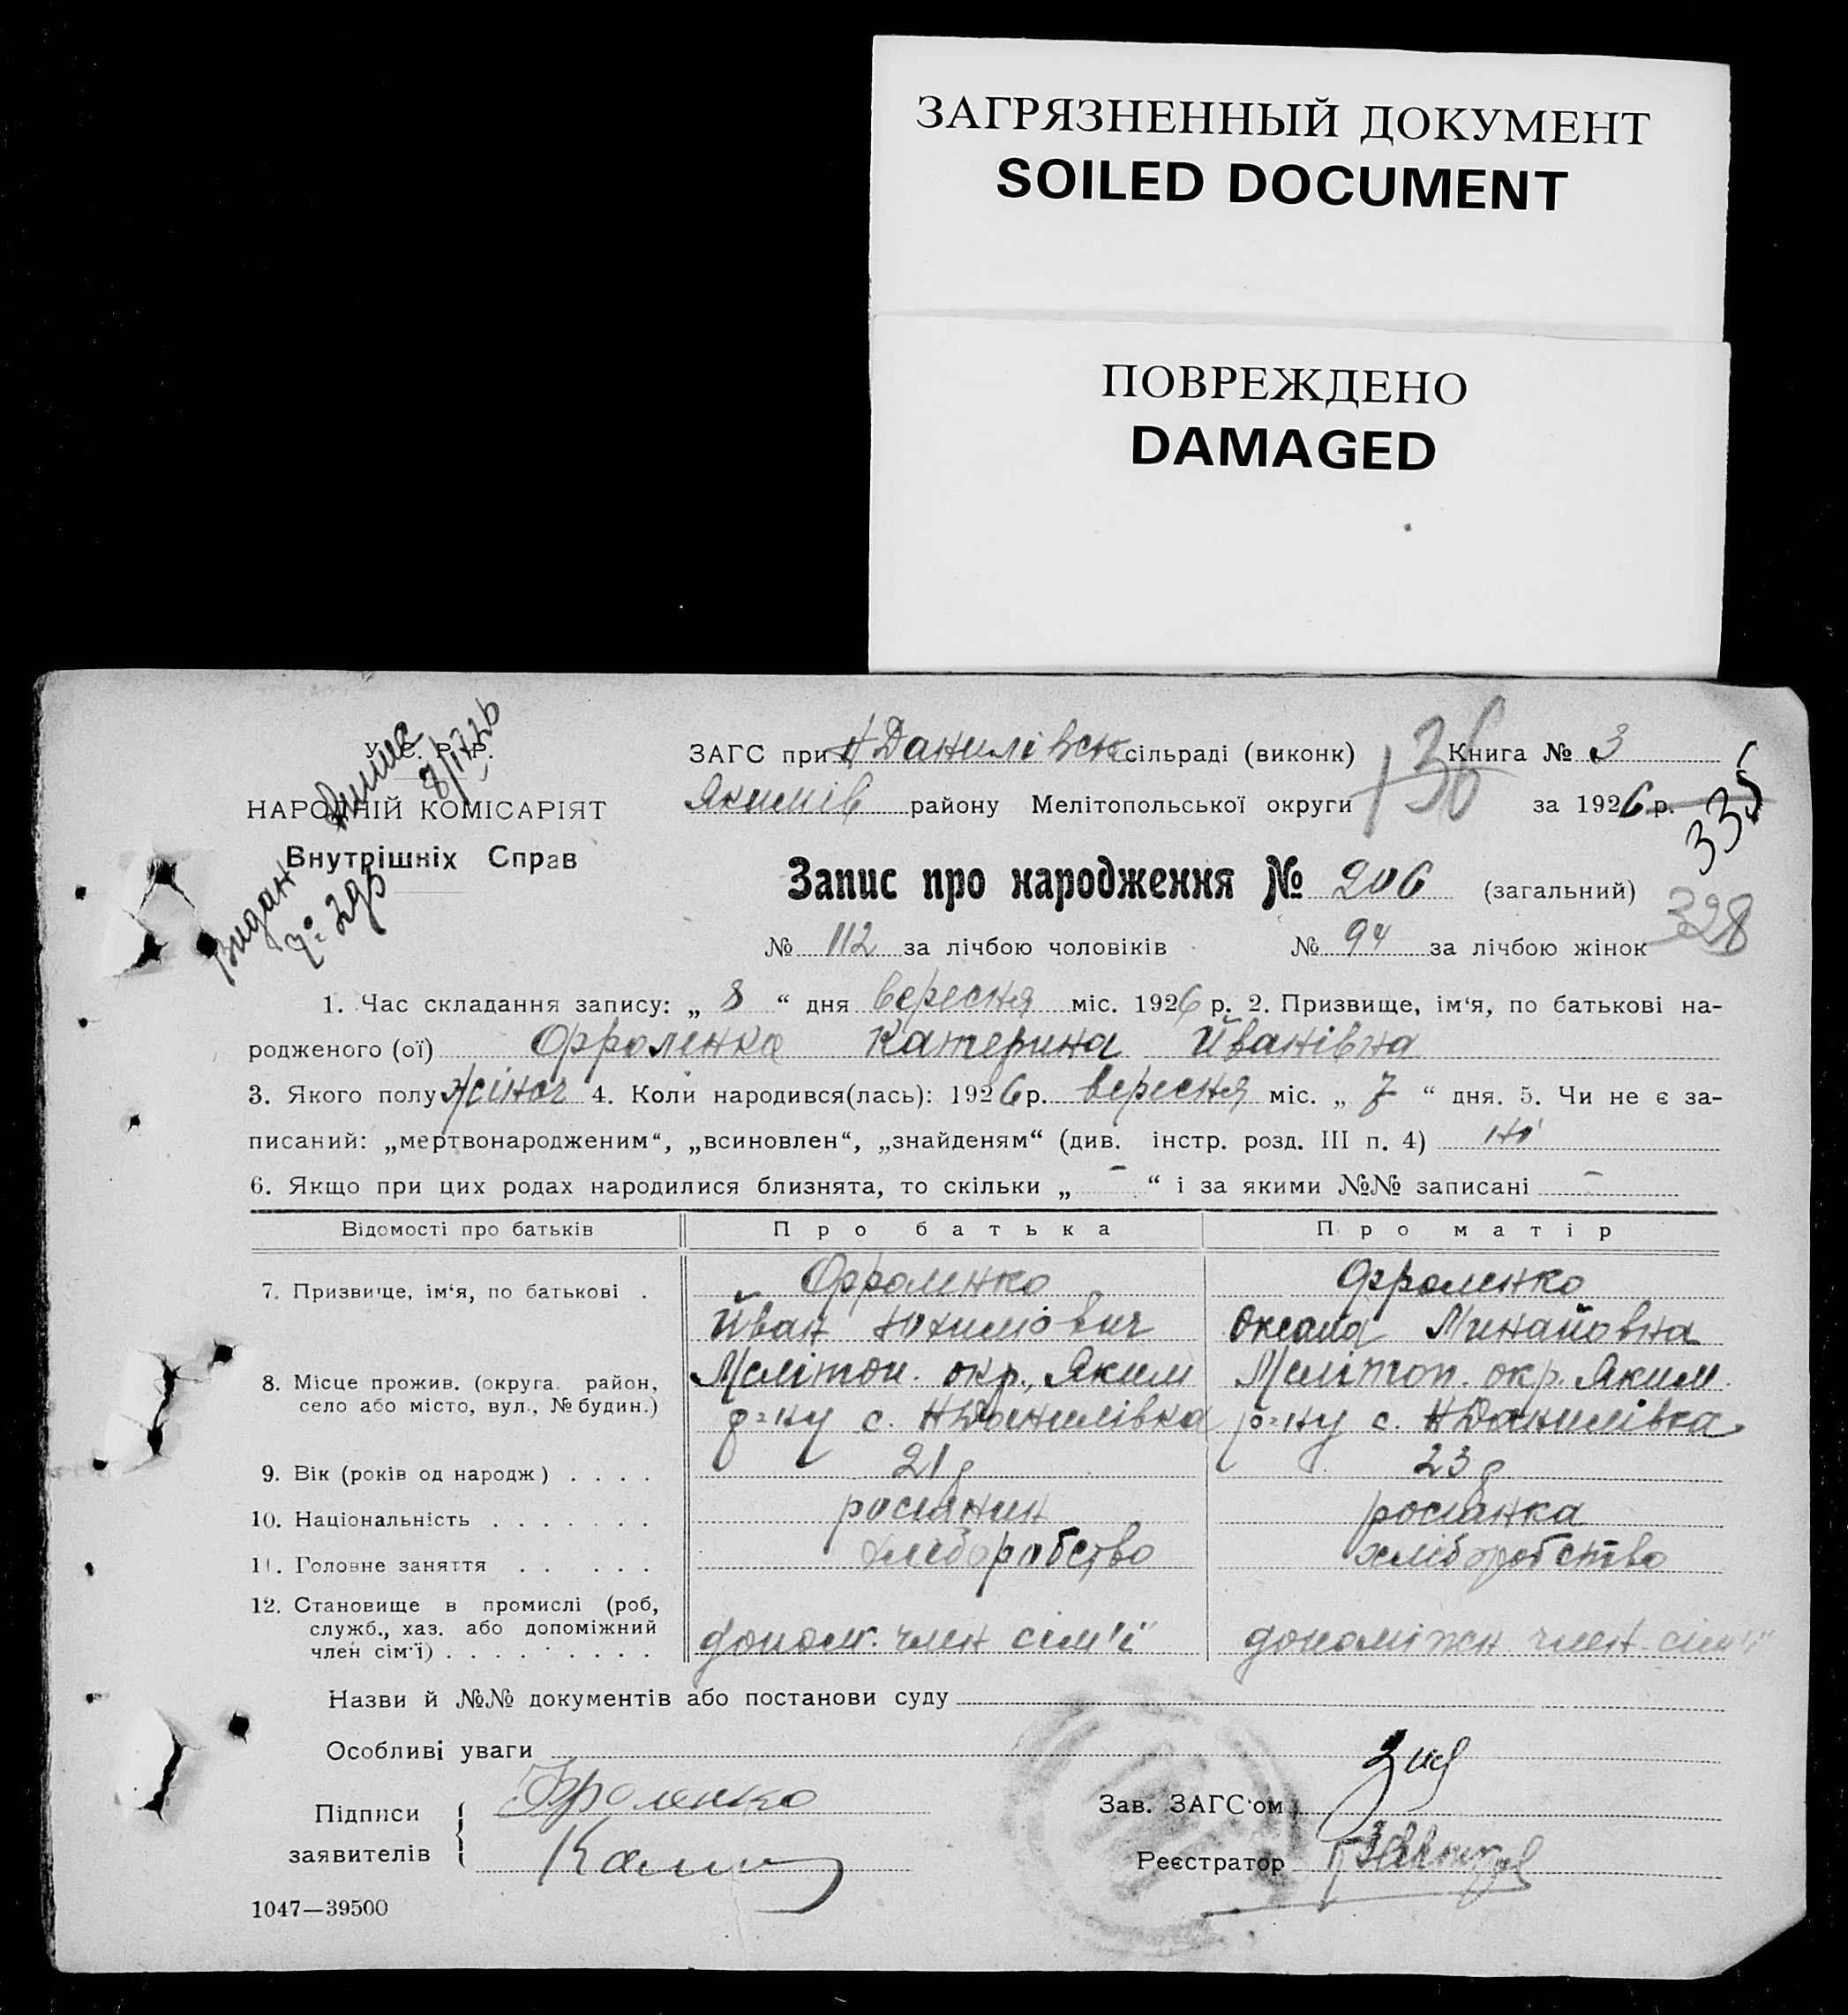 ЗАГРЯЗНЕННЫЙ ДОКУМЕНТ
SOILED DOCUMENT
ПОВРЕЖДЕНО
DAMAGED
У. С. Р. Р.
НАРОДНІЙ КОМІСАРІЯТ
Внутрішніх Справ
Видан
8/ІХ 26
ЗАГС при НДанилівск сільраді (виконк) Книга № 3
Якимів району Мелітопольської округи за 1926 р.
136
335
328
Запис про народження № 206 (загальний)
№ 112 за лічбою чоловіків № 94 за лічбою жінок
1. Час складання запису: „ 8 “ дня вересня міс. 1926 р. 2. Призвище, ім‘я, по батькові на-
родженого (ої) Фроленко Катерина Йванівна
3. Якого полу жіноч 4. Коли народився(лась): 1926 р. вересня міс. „ 7 “ дня. 5. Чи не є за-
писаний: „мертвонародженим“, „всиновлен“, „знайденям“ (див. інстр. розд. III п. 4) ні
6. Якщо при цих родах народилися близнята, то скільки „ – “ і за якими №№ записані –
Відомості про батьків Про батька Про матір
7. Призвище, ім‘я, по батькові . Фроленко Фроленко
Йван Юхимович Оксана Минайовна
8. Місце прожив. (округа. район, Мелітоп. окр., Яким Мелітоп. окр. Яким.
село або місто, вул., № будин.) р=ну с. НДанилівка р=ну с. НДанилівка
9. Вік (років од народж) . . . . 21 р 23 р
10. Національність . . . . . . . росіянин росіянка
11. Головне заняття . . . . . хліборобство хліборобство
12. Становище в промислі (роб,
служб., хаз. або допоміжний
член сім‘ї) . . . . . . . . . допом. член сім'ї допоміжн член сім'ї
Назви й №№ документів або постанови суду
Особливі уваги
Підписи Фроленко Зав. ЗАГС‘ом
заявителів Реєстратор
1047—39500